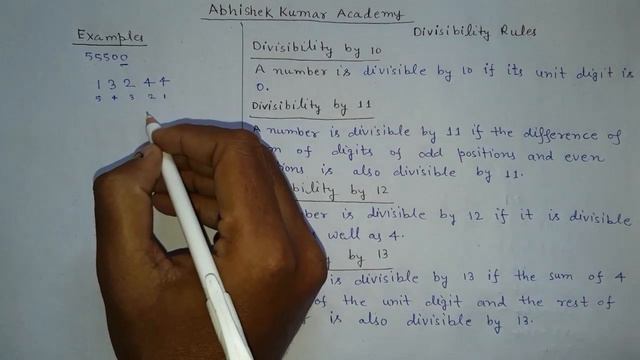 Abhishek Kumar Academy
Examples
Divisibility Rules
55500
1 3 2 4 4
5 4 3 2 1
Divisibility by 10
A number is divisible by 10 if its unit digit is
0.
Divisibility by 11
A number is divisible by 11 if the difference of
of digits of odd positions and even
is also divisible by 11.
by 12
is divisible by 12 if it is divisible
well as 4.
by 13
is divisible by 13 if the sum of 4
of the unit digit and the rest of
is also divisible by 13.